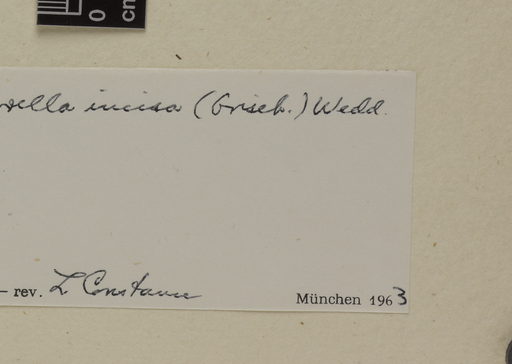 0
cm
orella incisa (Griseb.) Wedd.
– rev. L Constance
München 1963